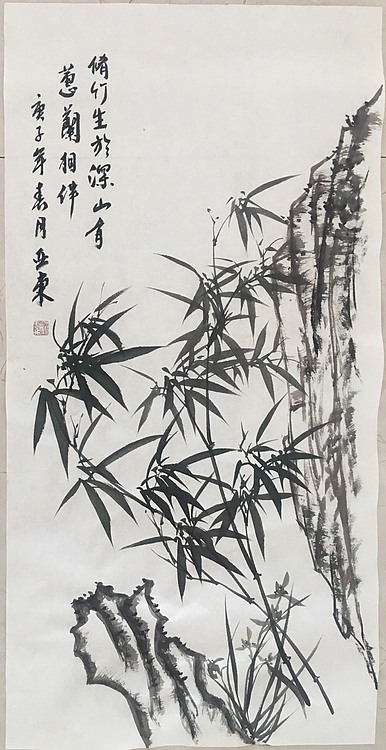 脩竹生於深山有
蕙蘭相伴
庚子年春月亚東